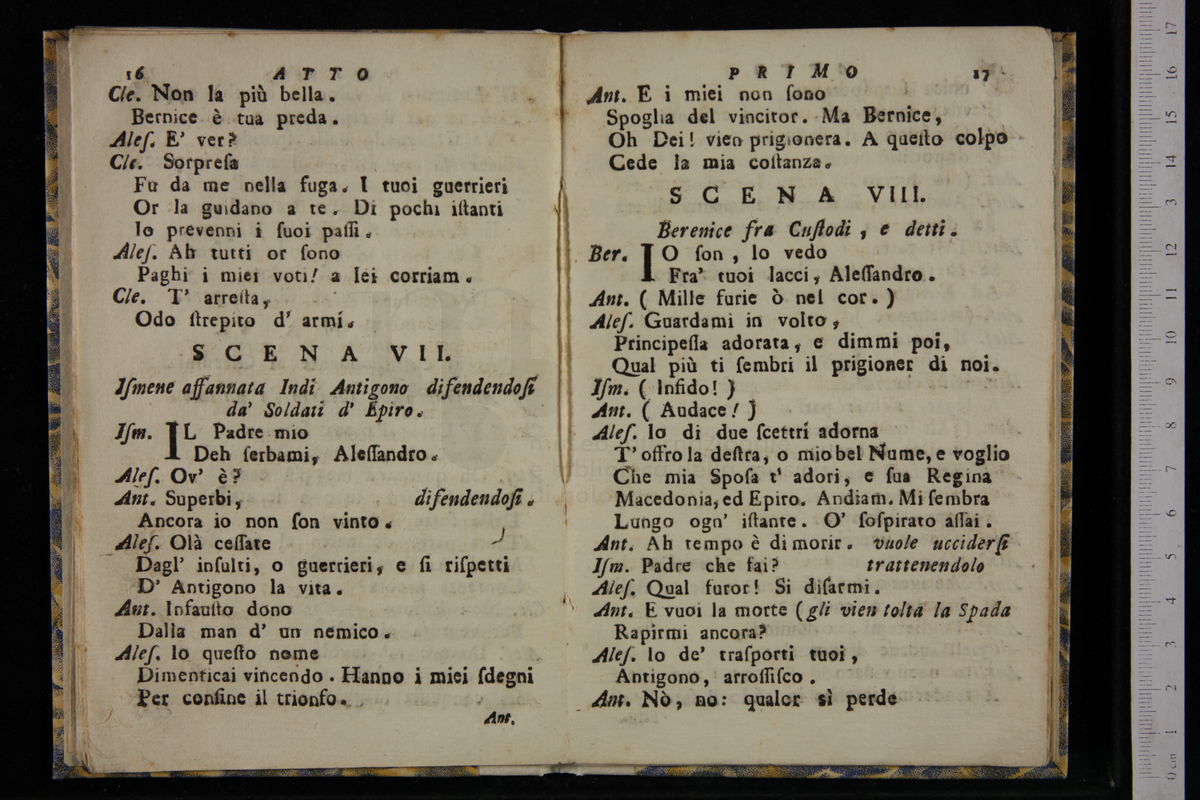 16 ATTO
Cle. Non la più bella.
Bernice è tua preda.
Aleſ. E' ver?
Cle. Sorpreſa
Fu da me nella fuga. I tuoi guerrieri
Or la guidano a te. Di pochi iſtanti
Io prevenni i ſuoi paſſi.
Aleſ. Ah tutti or ſono
Paghi i miei voti! a lei corriam.
Cle. T' arreſta,
Odo ſtrepito d' armi.
SCENA VII.
Iſmene affannata Indi Antigono difendendoſi
da' Soldati d' Epiro.
Iſm. IL Padre mio
Deh ſerbami, Aleſſandro.
Aleſ. Ov' è?
Ant. Superbi, difendendoſi.
Ancora io non ſon vinto.
Aleſ. Olà ceſſate
Dagl' inſulti, o guerrieri, e ſi riſpetti
D' Antigono la vita.
Ant. Infauſto dono
Dalla man d' un nemico.
Aleſ. Io queſto nome
Dimenticai vincendo. Hanno i miei ſdegni
Per confine il trionfo.
Ant.
PRIMO 17
Ant. E i miei non ſono
Spoglia del vincitor. Ma Bernice,
Oh Dei! vien prigionera. A queſto colpo
Cede la mia coſtanza.
SCENA VIII.
Berenice fra Cuſtodi, e detti.
Ber. IO ſon, lo vedo
Fra' tuoi lacci, Aleſſandro.
Ant. ( Mille furie ò nel cor. )
Aleſ. Guardami in volto,
Principeſſa adorata, e dimmi poi,
Qual più ti ſembri il prigioner di noi.
Iſm. ( Infido! )
Ant. ( Audace! )
Aleſ. Io di due ſcettri adorna
T' offro la deſtra, o mio bel Nume, e voglio
Che mia Spoſa t' adori, e ſua Regina
Macedonia, ed Epiro. Andiam. Mi ſembra
Lungo ogn' iſtante. O' ſoſpirato aſſai.
Ant. Ah tempo è di morir. vuole ucciderſi
Iſm. Padre che fai? trattenendolo
Aleſ. Qual furor! Si diſarmi.
Ant. E vuoi la morte (gli vien tolta la Spada
Rapirmi ancora?
Aleſ. Io de' traſporti tuoi,
Antigono, arroſſiſco.
Ant. Nò, no: qualor sì perde